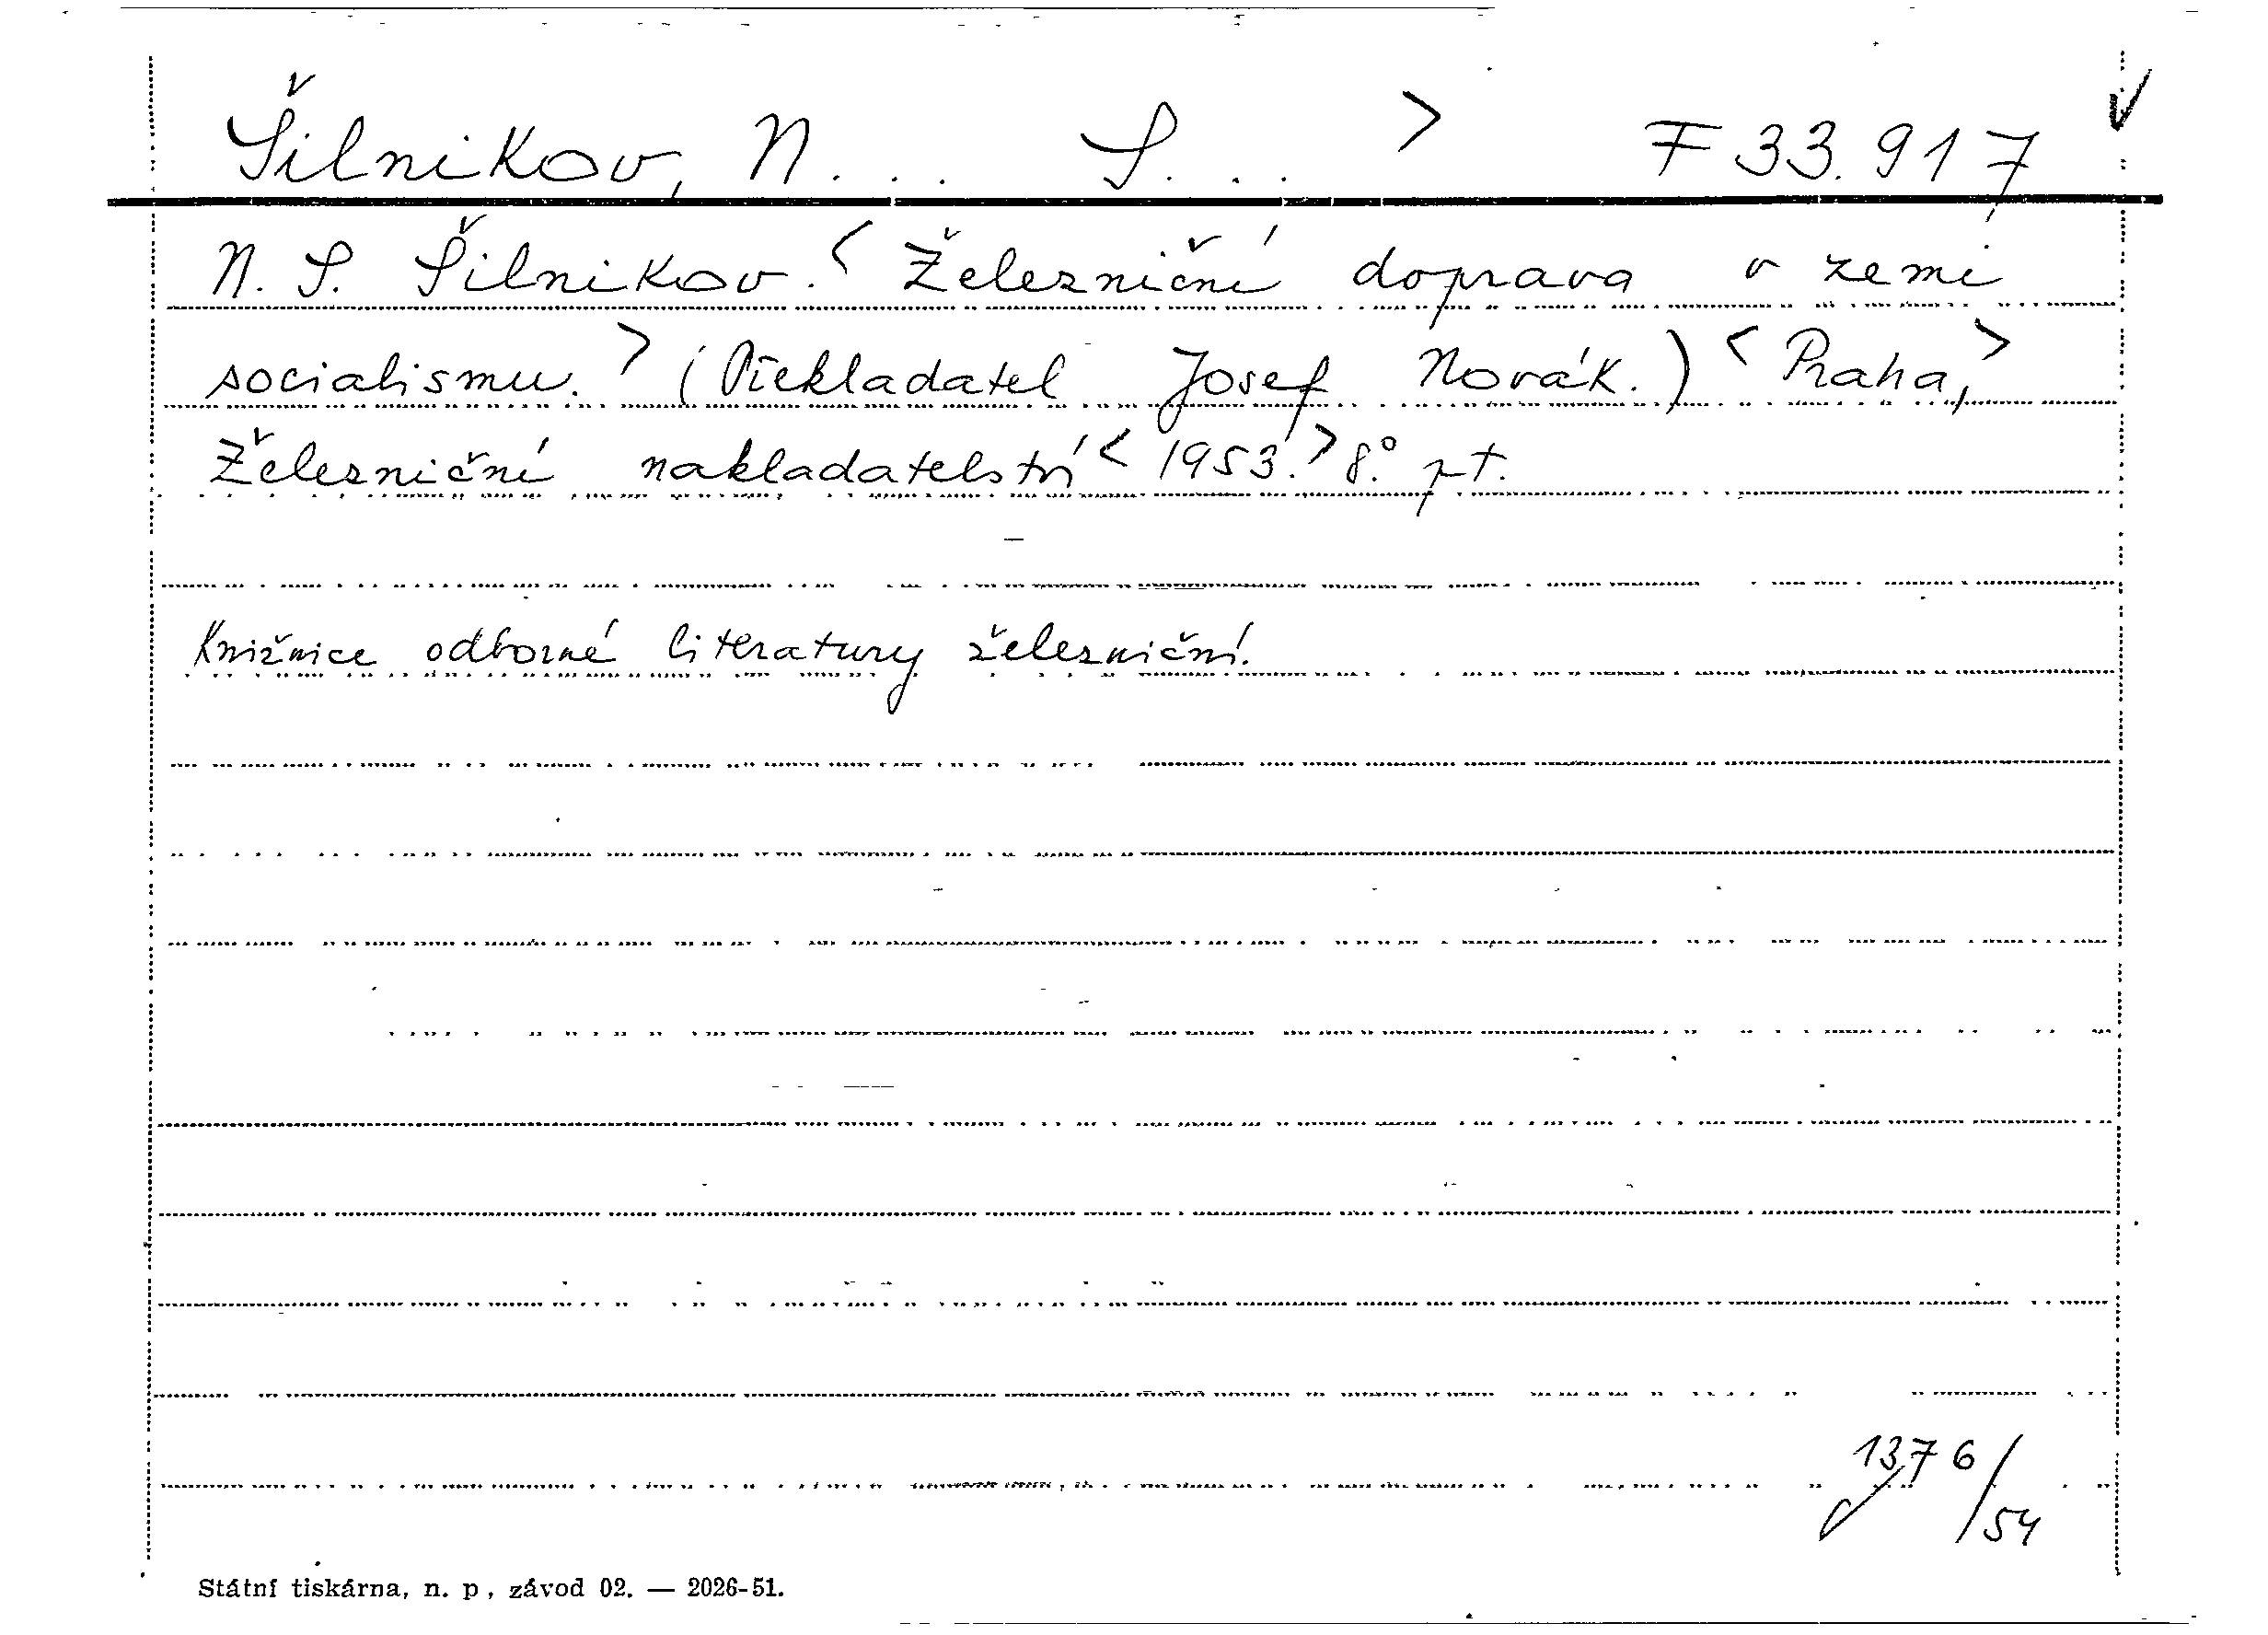 Šilnikov, N... S... > F 33.917
N. S. Šilnikov. < Železniční doprava v zemi
socialismu. > (Překladatel Josef Novák.) < Praha, >
Železniční nakladatelství < 1953. > 8°. pt.
Knižnice odborné literatury železniční.
1376/54
Státní tiskárna, n. p., závod 02. — 2026-51.